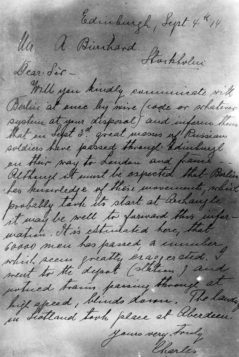 Edinburgh, Sept 4th 14
Mr. A Burchard
Stockholm
Dear Sir -
Will you kindly communicate with
Berlin at once by wire (code or whatever
system at your disposal) and inform them
that on Sept 3rd great masses of Russian
soldiers have passed through Edinburgh
on their way to London and France.
Although it must be expected that Berlin
has knowledge of these movements, which
probably took its start at Archangle
it may be well to forward this infor-
mation. It is estimated here, that
60000 men has passed a number
which seem greatly exaggerated. I
went to the depot (station) and
noticed trains passing through at
high speed, blinds down. The landing
in Scotland took place at Aberdeen.
Yours very truly
Charles